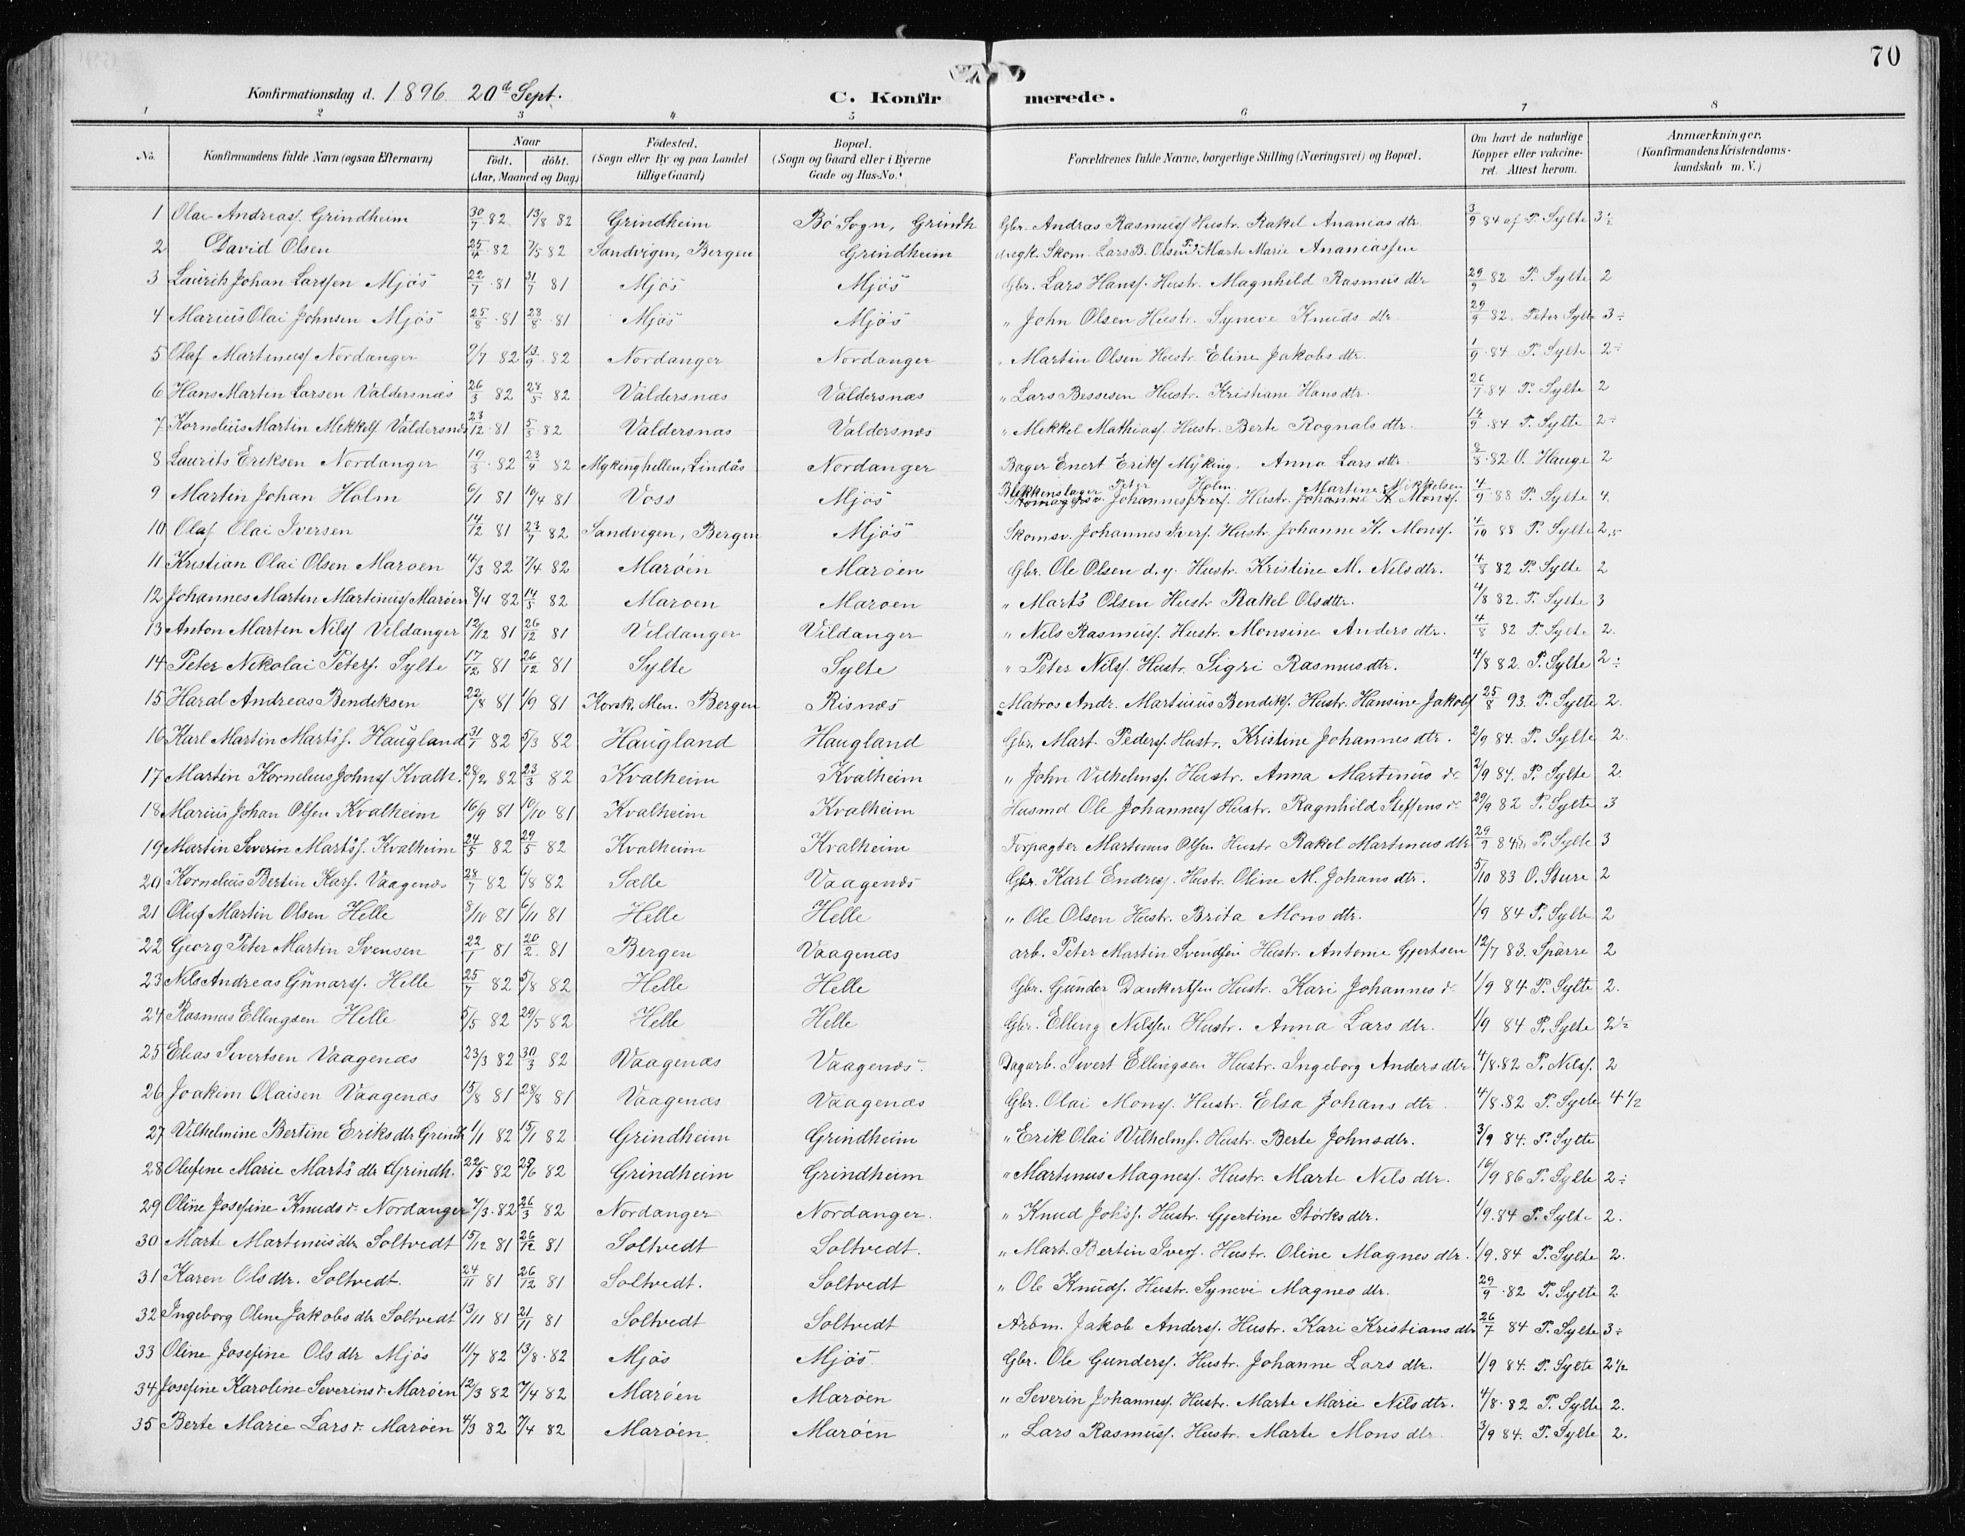 70
Konfirmationsdag d. 1896 20de Sept. C. Konfirmerede.
1 2 3 4 5 6 7 8
No. Konfirmandens fulde Navn (ogsaa Efternavn) Naar födt. döbt. (Aar, Maaned og Dag) Födested. (Sogn eller By og paa Landet tillige Gaard) Bopæl. (Sogn og Gaard eller i Byerne Gade og Hus-No.) Forældrenes fulde Navne, borgerlige Stilling (Næringsvei) og Bopæl. Om havt de naturlige Kopper eller vakcineret. Attest herom. Anmærkninger. (Konfirmandens Kristendomskundskab m. V.)
1 Olai Andreasf. Grindheim 30/7 82 13/8 82 Grindheim Bö Sogn, Grindh Gbr. Andras Rasmusf Hustr. Rakel Ananias dtr 3/9 84 af P. Sylte 3÷
2 David Olsen 25/4 82 7/5 82 Sandvigen, Bergen Grindheim Skom. Lars B. Olsen Marte Marie Ananiasfen
3 Laurits Johan Larsfen Mjös 22/7 81 31/7 81 Mjös Mjös Gbr. Lars Hansf. Hustr. Magnhild Rasmus dtr 29/9 82 P. Sylte 2
4 Marius Olai Johnsen Mjös 25/8 81 28/8 81 Mjös Mjös " John Olsen Hustr. Syneve Knuds dtr 29/9 82. Peter Sylte 3÷
5 Olaf Martinusf Nordanger 9/7 82 13/9 82 Nordanger Nordanger " Martin Olsen Hustr. Eline Jakobs dtr. 1/9 84 P. Sylte 2÷
6 Hans Martin Larsen Valdersnæs 26/3 82 28/5 82 Valdersnæs Valdersnæs " Lars Bessesen Hustr. Kristiane Hans dtr. 26/7 84 P. Sylte 2
7 Kornelius Martin Mikkelf Valdersnæs 23/12 81 5/3 82 Valdersnæs Valdersnæs " Mikkel Mathiasf. Hustr. Berte Rognals dtr. 84 P. Sylte 2÷
8 Laurits Eriksen Nordanger 19/3 82 23/4 82 Mykinghellen, Lindås Nordanger Bager Enert Eriks Myking. Anna Lars dtr. 8/8 82 O. Hauge 2
9 Martin Johan Holm 6/1 81 10/4 81 Voss Mjös Blekkenslager Peter Holm. Martine Mikkelsen 4/9 88 P. Sylte 4.
Johannes Iverf. Hustr. Johanne K. Monsf.
10 Olaf Olai Iversen 14/12 81 23/7 82 Sandvigen, Bergen Mjös Skomv. Johannes Iverf. Hustr Johanne K. Monsf. 4/10 88 P. Sylte 2
11 Kristian Olai Olsen Maroen 4/3 82 7/4 82 Maröen Maröen Gbr. Ole Olsen d. y. Hustr. Kristine M. Nils dtr. 4/8 82 P. Sylte 2
12 Johannes Martin Martinusf Maröen 8/4 82 14/5 82 Maroen Maroen " Marts Olsen Hustr. Rakel Ols dtr. 4/8 82. P. Sylte 3
13 Anton Martin Nilsf Vildanger 12/12 81 26/12 81 Vildanger Vildanger " Nils Rasmusf. Hustr. Monsine Anders dtr. 4/8 82 P. Sylte 2.
14 Peter Nikolai Petersf. Sylte 17/12 81 26/12 81 Sylte Sylte " Peter Nilsf. Hustr. Sigri Rasmus dtr. 4/8 82. P. Sylte 2÷
15 Haral Andreas Bendiksen 22/8 81 1/9 81 Korsk. Men. Bergen Risnæs Matros Andr. Martinus Bendiksf. Hustr. Hansine Jakobsf 25/8 93. P. Sylte 2.
16 Karl Martin Martsf. Haugland 31/1 82 5/3 82 Haugland Haugland Gbr. Mart. Pedersf. Hustr. Kristine Johannes dtr. 2/9 84. P. Sylte 2.
17 Martin Kornelius Johnsf Kvalh. 28/2 82 23/3 82 Kvalheim Kvalheim " John Vilhelmsf. Hustr. Anna Martinus dr 2/9 84. P. Sylte 2.
18 Marius Johan Olsen Kvalheim 16/9 81 10/10 81 Kvalheim Kvalheim Husmd Ole Johannesf Hustr. Ragnhild Steffens dr 29/9 82 P. Sylte 3
19 Martin Severin Martsf. Kvalheim 24/5 82 29/5 82 Kvalheim Kvalheim Forpagter Martinus Olsen Hustr Rakel Martinus dtr 29/9 84 P. Sylte 3
20 Kornelius Bertin Karlf. Vaagenæs 28/7 82 6/8 82 Sælle Vaagenæs Gbr. Karl Endresf. Hustr. Oline M. Johans dtr. 5/10 83 O. Sture 2
21 Oluf Martin Olsen Helle 8/10 81 6/11 81 Helle Helle " Ole Olsen Hustr. Brita Mons dtr. 1/9 84 P. Sylte 2
22 Georg Peter Martin Svensen 22/1 81 20/2. 81 Bergen Vaagenæs arb. Peter Martin Svendsen Hustr. Antonie Gjertsen 12/7 83. Sparre 2
23 Nils Andreas Gunarsf. Helle 25/7 82 5/8 82 Helle Helle Gbr. Gunder Dankertsen Hustr. Kari Johannes dr 1/9 84 P. Sylte 2.
24 Rasmus Ellingsen Helle 5/5 82 29/5 82 Helle Helle Gbr. Elling Nilsen Hustr. Anna Lars dtr. 1/9 84 P. Sylte 2½
25 Elias Sivertsen Vaagenæs 23/3 82 30/3 82 Vaagenæs Vaagenæs. Dagarb. Sivert Ellingsen Hustr. Ingeborg Anders dtr 4/8.82 P. Nilsf. 2
26 Joakim Olaisen Vaagenæs 15/8 81 28/8 81 Vaagenæs Vaagenæs Gbr. Olai Monsf. Hustr. Elsa Johans dtr. 4/8.82 P. Sylte 4½
27 Vilhelmine Bertine Eriks dtr Grindh 1/1 82 15/1 82 Grindheim Grindheim " Erik Olai Vilhelmsf. Hustr. Berte Johns dtr. 3/9 84. P. Sylte
28 Olufine Marie Marts dtr Grindh. 22/5 82 82 Grindheim Grindheim " Martinus Magnesf. Hustr. Marte Nils dtr. 16/9 86 P. Sylte 2÷
29 Oline Josefine Knuds dr Nordanger 7/3. 82 26/3 82 Nordanger Nordanger. " Knud Hustr. Gjertine Störks dtr. 1/9. 84 P. Sylte 2.
30 Marte Martinus dtr Soltvedt 15/12 81 26/12 81 Soltvedt Soltvedt. " Mart. Bertin Iversf. Hustr. Oline Magnes dtr. 1/9. 84 P. Sylte 2.
31 Karen Ols dtr. Soltvedt. 24/11 81 26/12 81 Soltvedt. Soltvedt " Ole Knudsf. Hustr. Synevi Magnes dtr. 29/9 82 P. Sylte 2
32 Ingeborg Oline Jakobs dtr Soltvedt 13/11 81 21/11 81 Soltvedt Soltvedt Arbm. Jakob Andersf. Hustr. Kari Kristians dtr 26/7 84 P. Sylte 3÷
33 Oline Josefine Ols dtr Mjös 11/7 82 13/8. 82 Mjös Mjös Gbr. Ole Gundersf. Hustr. Johanne Lars dtr. 1/9 84. P. Sylte 2½
34 Josefine Karoline Severins dr. Maröen 12/3 82 7/4 82 Maröen Maröen " Severin Johannesf. Hustr. Marte Marie Nils dtr. 4/8. 82 P. Sylte 2.
35 Berte Marie Lars dr. Maröen 4/3 82 7/4 82 Maröen. Maröen " Lars Rasmusf. Hustr. Marte Mons dtr 3/9 84. P. Sylte 2.